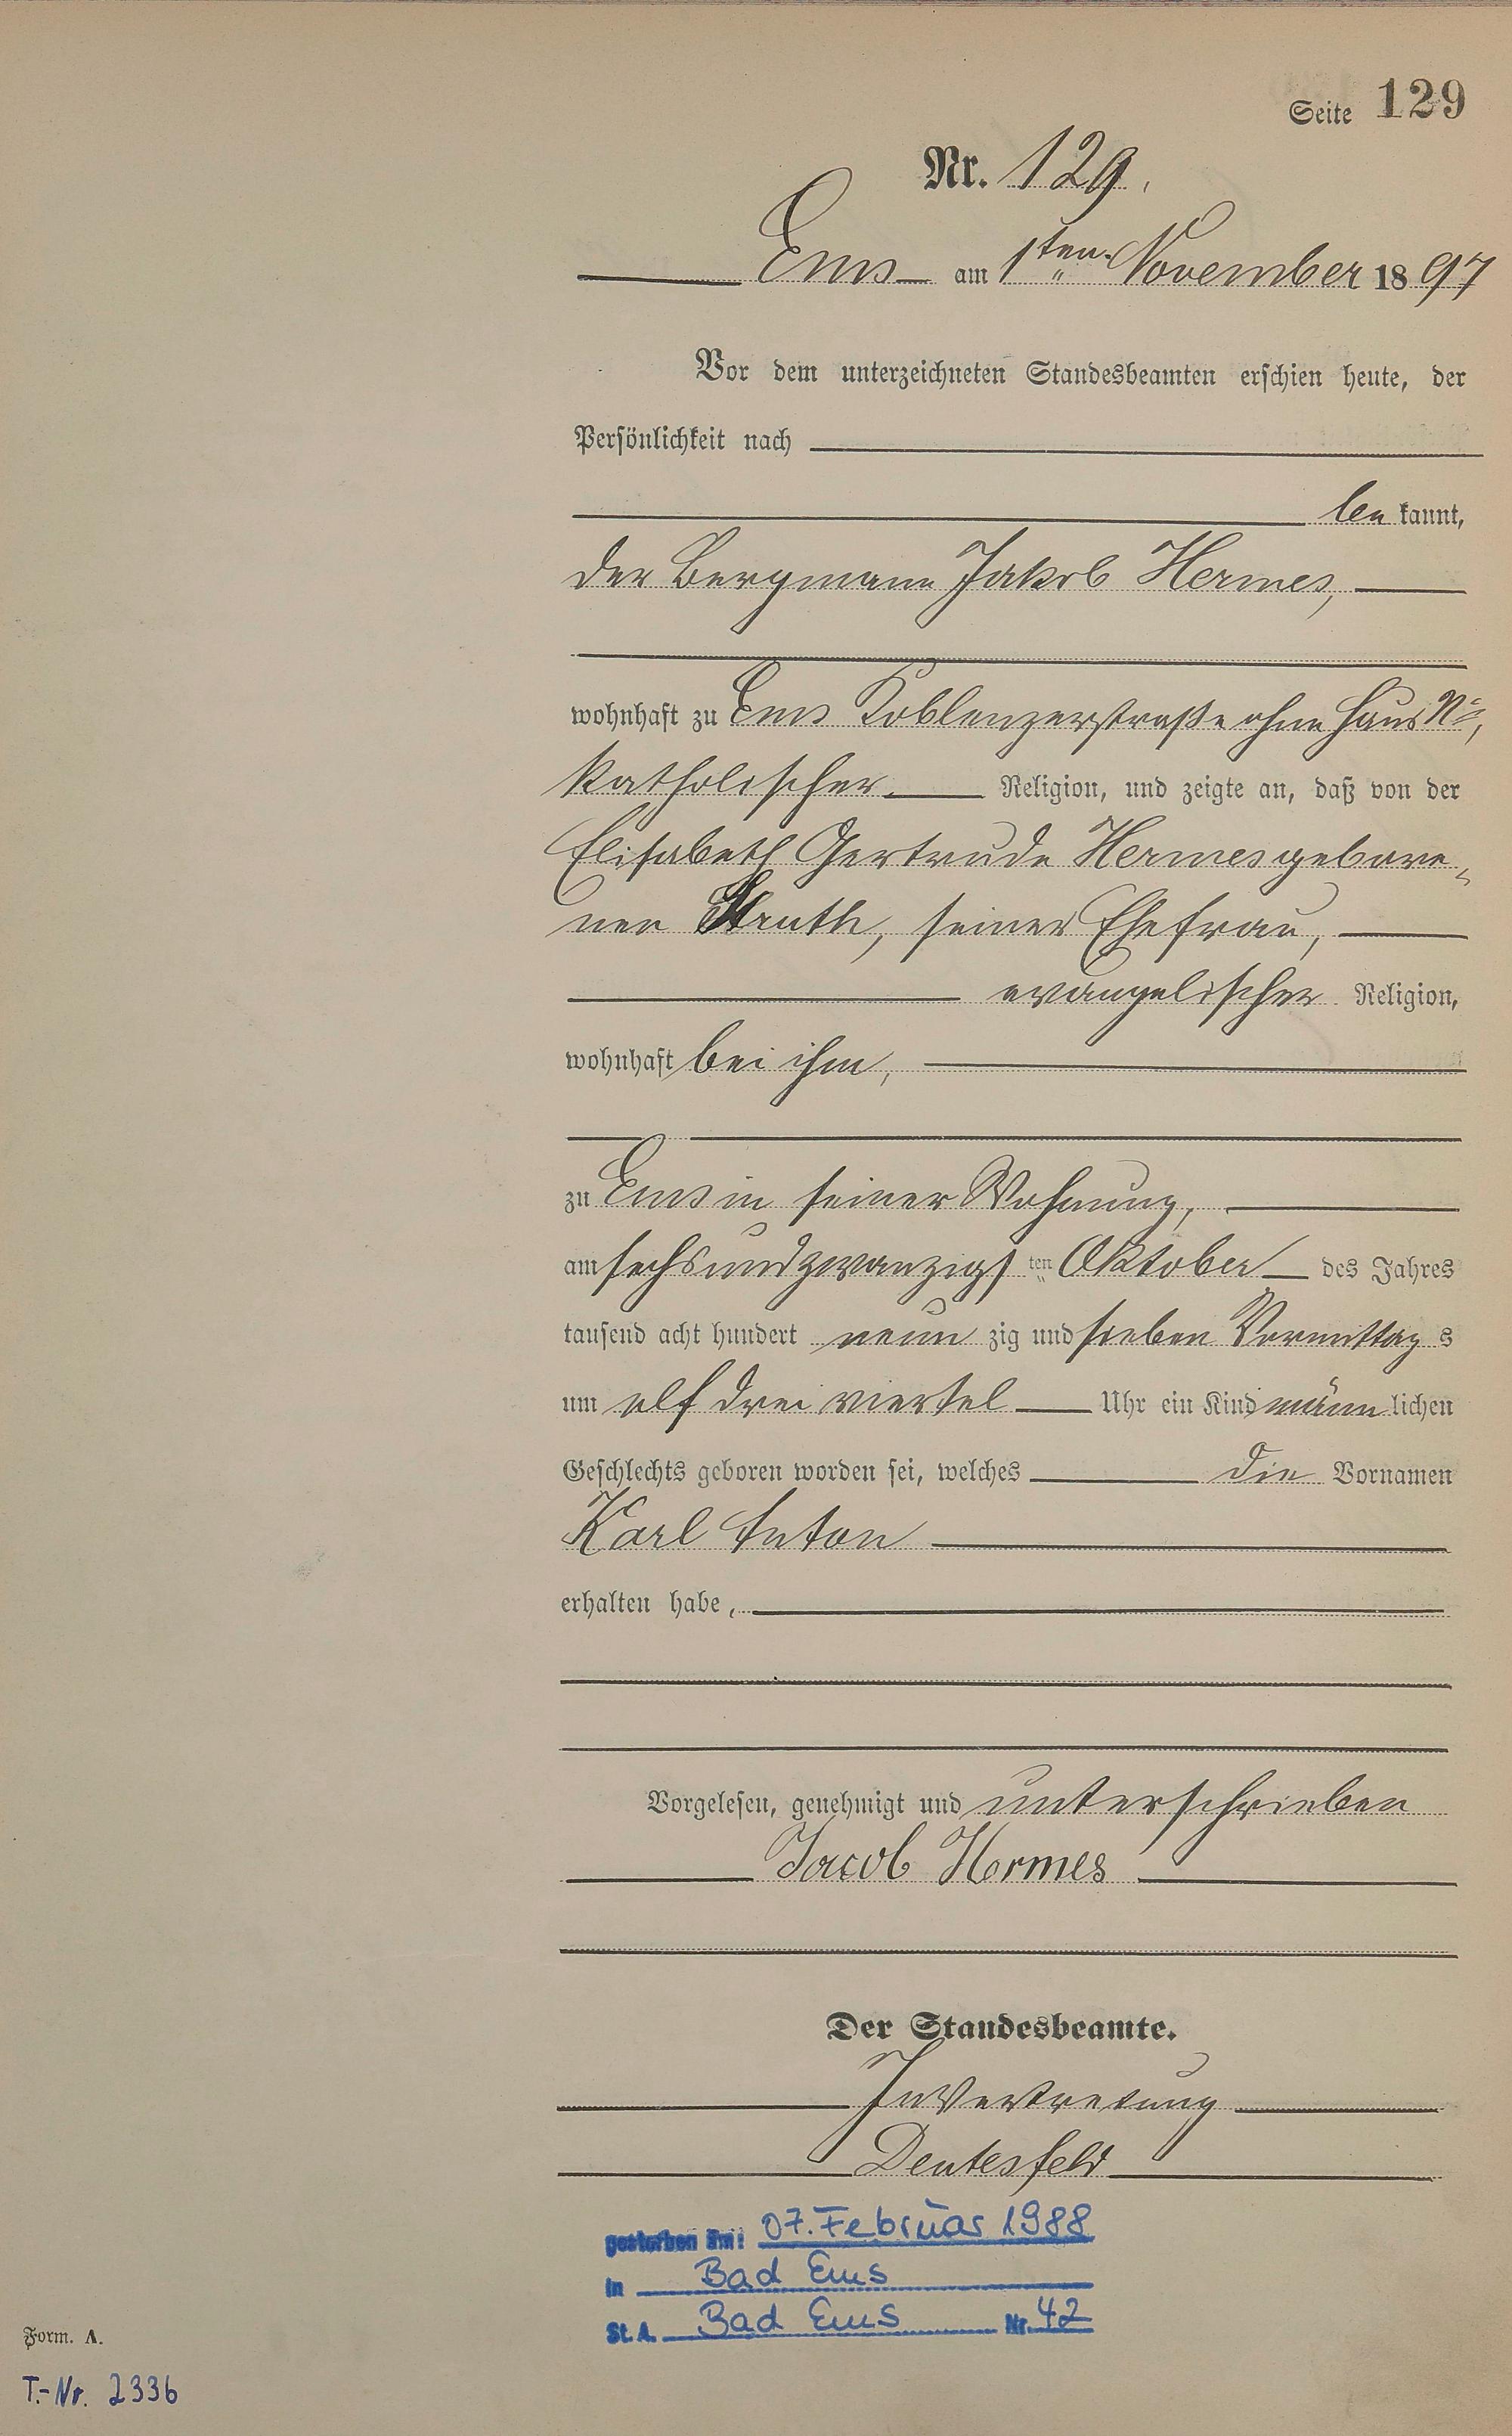 Seite 129
Nr. 129.
Ems am 1ten November 1897
Vor dem unterzeichneten Standesbeamten erschien heute, der
Persönlichkeit nach
bekannt,
der Bergmann Jakob Hermes,
wohnhaft zu Ems Koblenzerstraße ohne Haus No,
katholischer Religion, und zeigte an, daß von der
Elisabeth Gertrude Hermes gebore-
nen Struth, seiner Ehefrau,
evangelischer Religion,
wohnhaft bei ihm,
zu Ems in seiner Wohnung,
am sechsundzwanzigsten Oktober des Jahres
tausend acht hundert neunzig und sieben Vormittags
um elf drei viertel Uhr ein Kind männlichen
Geschlechts geboren worden sei, welches die Vornamen
Karl Anton
erhalten habe,
Vorgelesen, genehmigt und unterschrieben
Jacob Hermes
Der Standesbeamte.
In Vertretung
Deutesfeld
gestorben am: 07. Februar 1988
in Bad Ems
St. A. Bad Ems Nr. 42
Form. A.
T.-Nr. 2336